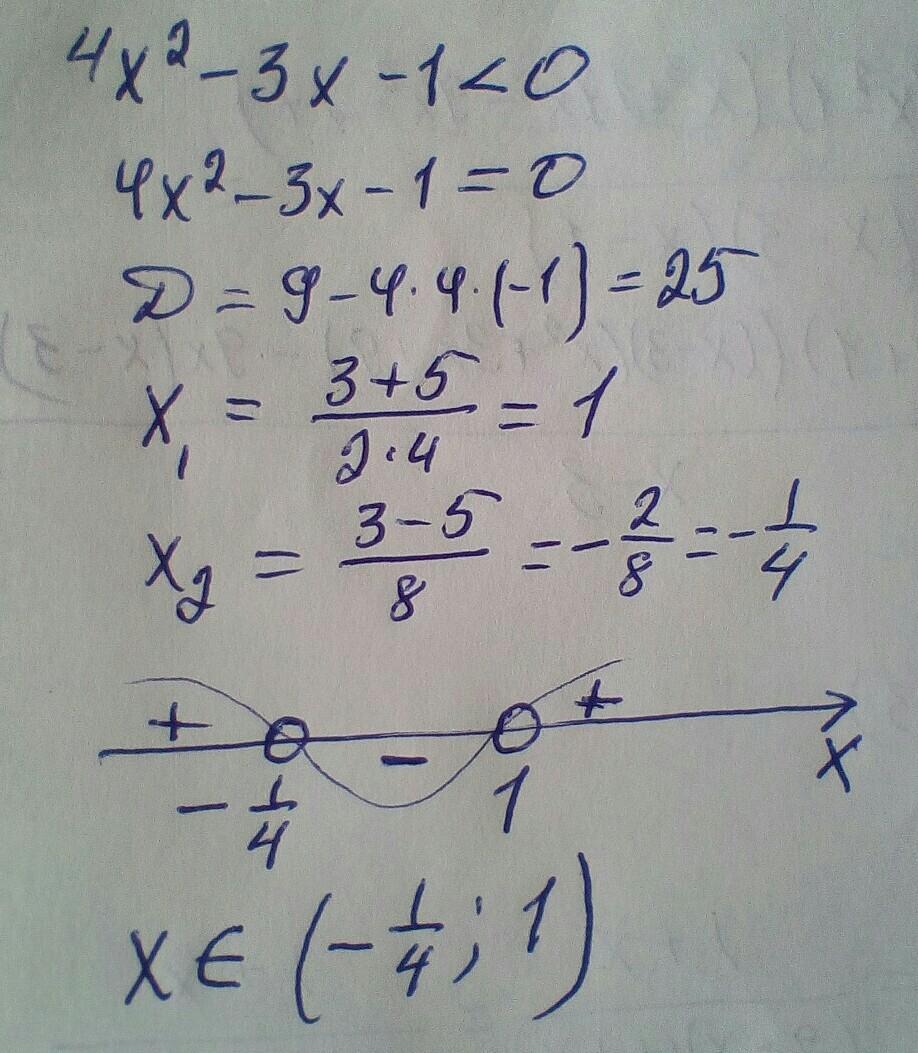 4x² - 3x - 1 < 0
4x² - 3x - 1 = 0
D = 9 - 4·4·(-1) = 25
x₁ = (3+5)/(2·4) = 1
x₂ = (3-5)/8 = -2/8 = -1/4
+ - +
-1/4 1 x
x ∈ (-1/4; 1)